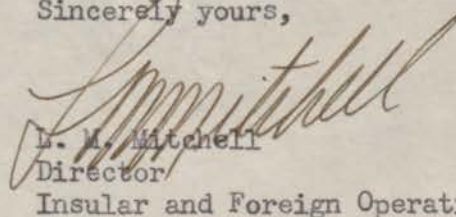 Sincerely yours,
L M Mitchell
L. M. Mitchell
Director
Insular and Foreign Operati